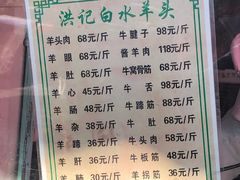 洪记白水羊头
羊头肉 68元/斤 牛腱子 98元/斤
羊眼 68元/斤 酱羊肉 118元/斤
羊肚 68元/斤 牛窝骨筋 68元/斤
羊心 45元/斤 牛舌 98元/斤
羊肠 48元/斤 牛蹄筋 88元/斤
羊杂 38元/斤 牛头肉 58元/斤
羊蹄 36元/斤 牛肚 58元/斤
羊肝 36元/斤 牛板筋 48元/斤
羊肺 30元/斤 羊拐筋 56元/斤